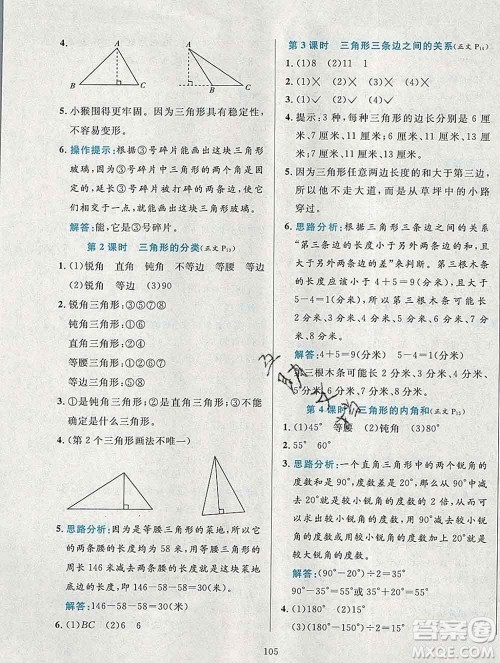 4.
A
A
B
C
B
C
5. 小猴围得更牢固。因为三角形具有稳定性，
不容易变形。
6. 操作提示：根据③号碎片能画出这块三角形
玻璃，因为③号碎片中三角形的两个角是固
定的，延长③号碎片被打碎的两条边，使它
们相交于一点，就能画出这块三角形玻璃。
解答：带③号碎片。
第2课时　三角形的分类(正文P₁₃)
1. (1)锐角　直角　钝角　不等边　等腰　等边
(2)3　锐角　(3)90
2. 锐角三角形：③⑤⑦⑧
钝角三角形：①⑥
直角三角形：②④
等腰三角形：⑤⑦⑧
等边三角形：⑤
3. ①是钝角三角形，②是直角三角形，③不能
确定是什么三角形。
4. (第2个三角形画法不唯一)
5. 思路分析：因为是等腰三角形的菜地，所以
它的两条腰的长度均为58米，用三角形的
周长146米减去两条腰的长度就是这块菜
地底边的长度，即146-58-58=30(米)。
解答：146-58-58=30(米)
6. (1)BC　(2)6　6
第3课时　三角形三条边之间的关系(正文P₁₄)
1. (1)8　(2)11　8
2. (1)×　(2)✓　(3)×
3. (1)✓　(2)✓
4. 提示：3种，每种三角形的边长分别是6厘
米、7厘米、11厘米；6厘米、7厘米、8厘米；
7厘米、8厘米、11厘米。
5. 因为三角形任意两边长度的和大于第三边，
所以他不走大道，而是从草坪中的小路
穿过。
6. 思路分析：根据三角形三条边之间的关系
“第三条边的长度小于另外两条边的和，且
大于另外两条边之差”来判断。第三根木条
的长度应该小于4+5=9(分米)，还应大于
5-4=1(分米)。
解答：4+5=9(分米)　5-4=1(分米)
第三根木条可能长2分米、3分米、4分米、5
分米、6分米、7分米、8分米。
第4课时　三角形的内角和(正文P₁₅)
1. (1)45°　等腰　(2)钝角　(3)60°
2. 55°　60°
3. 思路分析：一个直角三角形中的两个锐角的
度数和是90°，因为较大锐角的度数比较小
锐角的度数多20°，那么从90°中减去20°就
是较小锐角的度数的2倍，再除以2就是较
小锐角的度数，用90°减去较小锐角的度数
就是较大锐角的度数。
解答：(90°-20°)÷2=35°
90°-35°=55°
4. (1)180°　(180°-90°)÷2=45°
105
答案圈
MXQE.COM